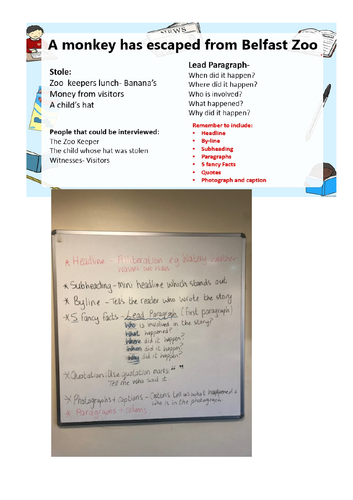 NEWS
A monkey has escaped from Belfast Zoo
Stole:
Zoo keepers lunch- Banana's
Money from visitors
A child's hat
People that could be interviewed:
The Zoo Keeper
The child whose hat was stolen
Witnesses- Visitors
Lead Paragraph-
When did it happen?
Where did it happen?
Who is involved?
What happened?
Why did it happen?
Remember to include:
• Headline
• By-line
• Subheading
• Paragraphs
• 5 fancy Facts
• Quotes
• Photograph and caption
* Headline - Alliteration e.g
* Subheading - Mini headline which stands out
* Byline - Tells the reader who wrote the story
* 5 fancy facts - Lead Paragraph (first paragraph)
Who is involved in the story?
What happened?
Where did it happen?
When did it happen?
Why did it happen?
* Quotation: Use quotation marks " "
Tell me who said it
* Photographs + captions - tell us what happened +
who is in the photograph
* Paragraphs +